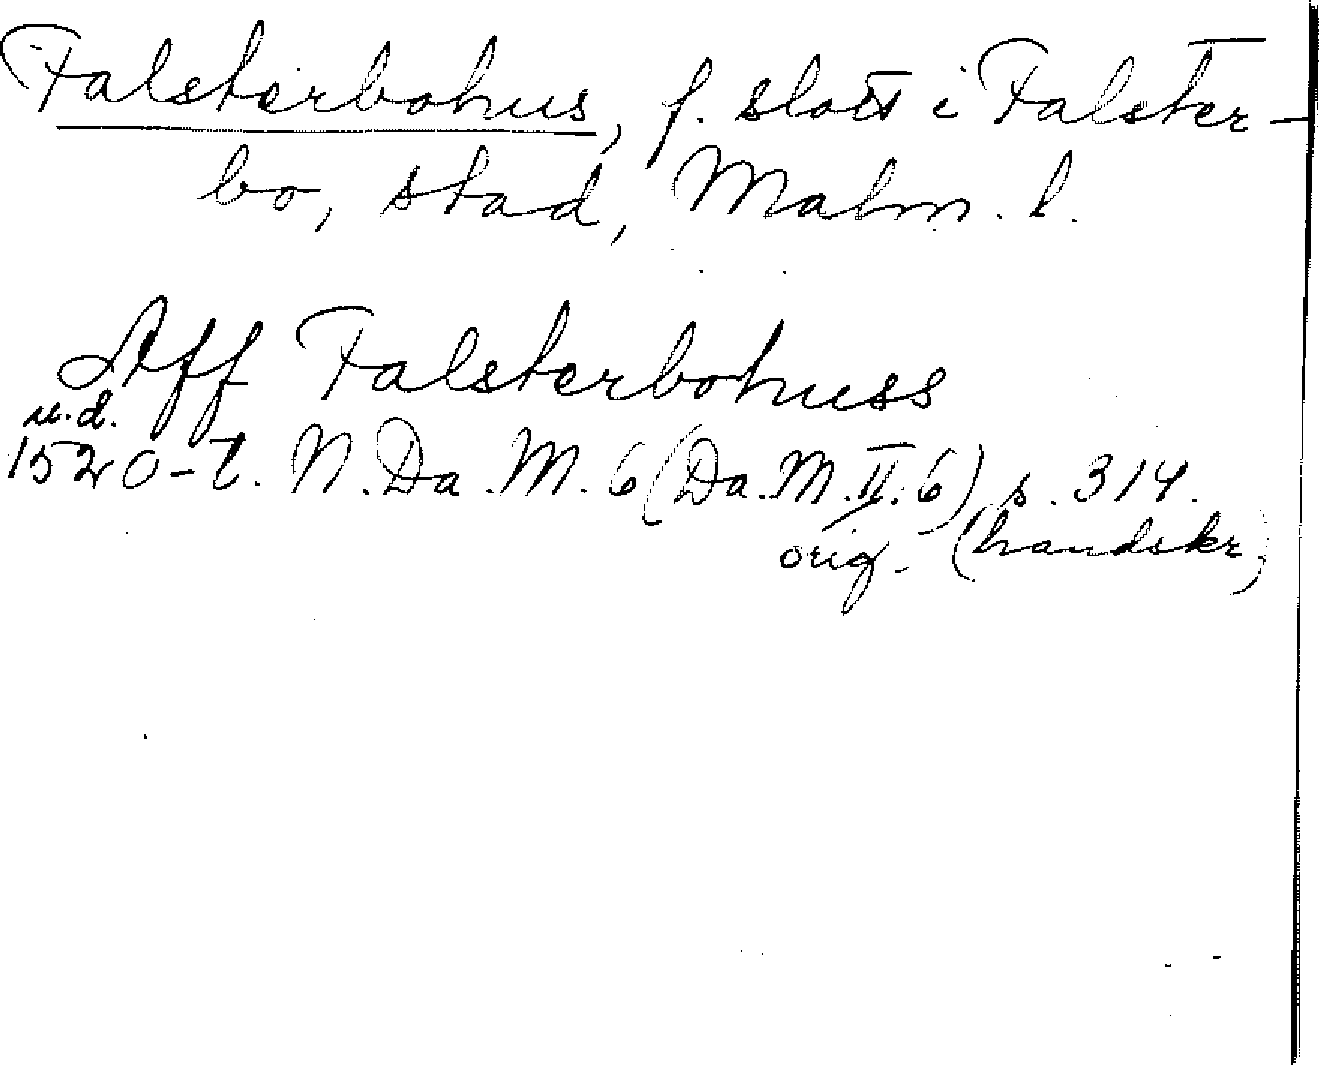 Falsterbohus, f. slott i Falster-
bo, stad, Malm. l.
Aff Falsterbohuss
u.d.
1520-t. N. Da. M. 6 (Da. M. II. 6) s. 314.
orig. (handskr.)